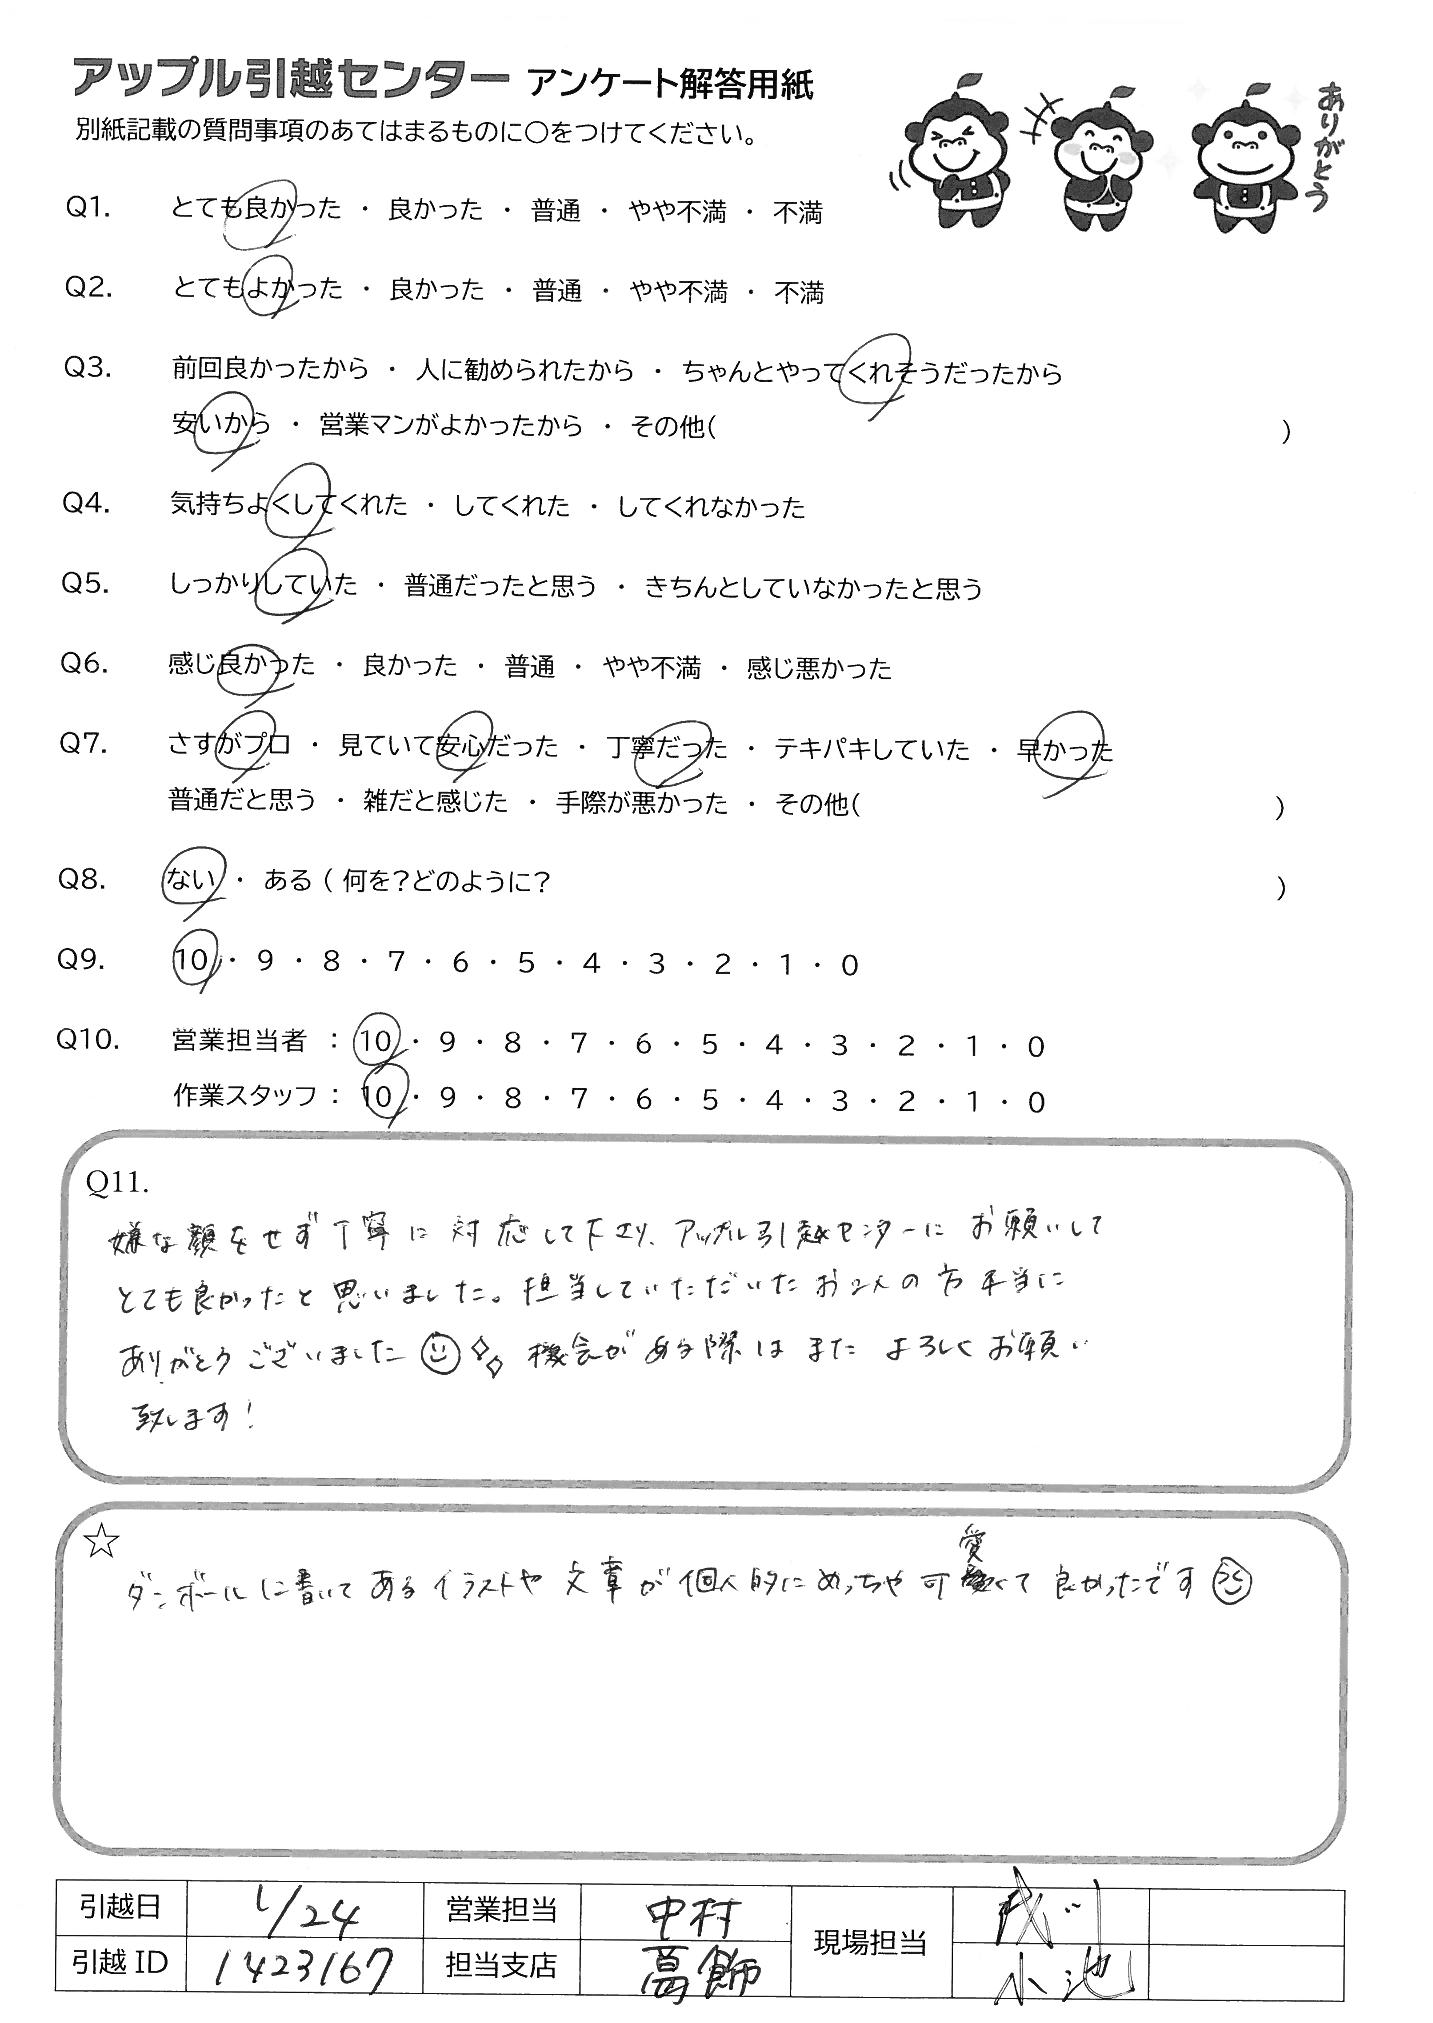 アップル引越センター アンケート解答用紙
別紙記載の質問事項のあてはまるものに○をつけてください。
ありがとう
Q1. とても良かった ・ 良かった ・ 普通 ・ やや不満 ・ 不満
Q2. とてもよかった ・ 良かった ・ 普通 ・ やや不満 ・ 不満
Q3. 前回良かったから ・ 人に勧められたから ・ ちゃんとやってくれそうだったから
安いから ・ 営業マンがよかったから ・ その他( )
Q4. 気持ちよくしてくれた ・ してくれた ・ してくれなかった
Q5. しっかりしていた ・ 普通だったと思う ・ きちんとしていなかったと思う
Q6. 感じ良かった ・ 良かった ・ 普通 ・ やや不満 ・ 感じ悪かった
Q7. さすがプロ ・ 見ていて安心だった ・ 丁寧だった ・ テキパキしていた ・ 早かった
普通だと思う ・ 雑だと感じた ・ 手際が悪かった ・ その他( )
Q8. ない ・ ある ( 何を?どのように? )
Q9. 10 ・ 9 ・ 8 ・ 7 ・ 6 ・ 5 ・ 4 ・ 3 ・ 2 ・ 1 ・ 0
Q10. 営業担当者 : 10 ・ 9 ・ 8 ・ 7 ・ 6 ・ 5 ・ 4 ・ 3 ・ 2 ・ 1 ・ 0
作業スタッフ : 10 ・ 9 ・ 8 ・ 7 ・ 6 ・ 5 ・ 4 ・ 3 ・ 2 ・ 1 ・ 0
Q11.
嫌な顔をせず丁寧に対応して下さり、アップル引越センターにお願いして
とても良かったと思いました。担当していただいたお2人の方本当に
ありがとうございました 機会がある際はまたよろしくお願い
致します!
☆
ダンボールに書いてあるイラストや文章が個人的にめっちゃ可愛くて良かったです
引越日 1/24 営業担当 中村 現場担当
引越ID 1423167 担当支店 葛飾 小池